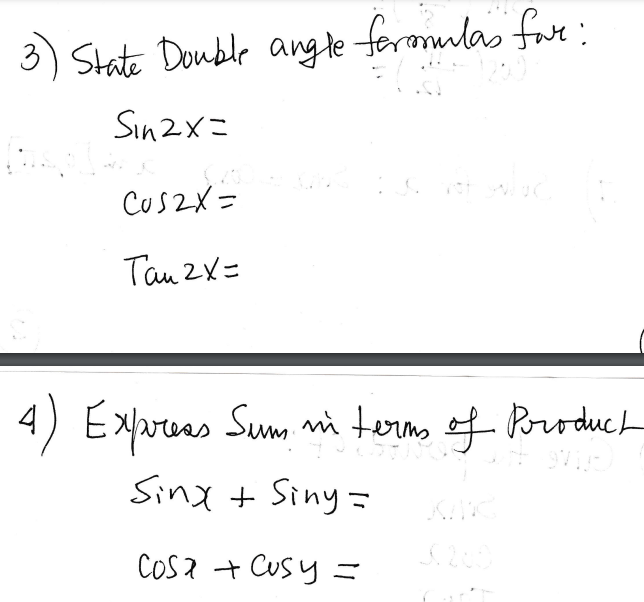 3) State Double angle formulas for:
Sin2x=
Cos2x=
Tan2x=
4) Express Sum in terms of Product
Sinx + Siny=
Cosx + Cosy =